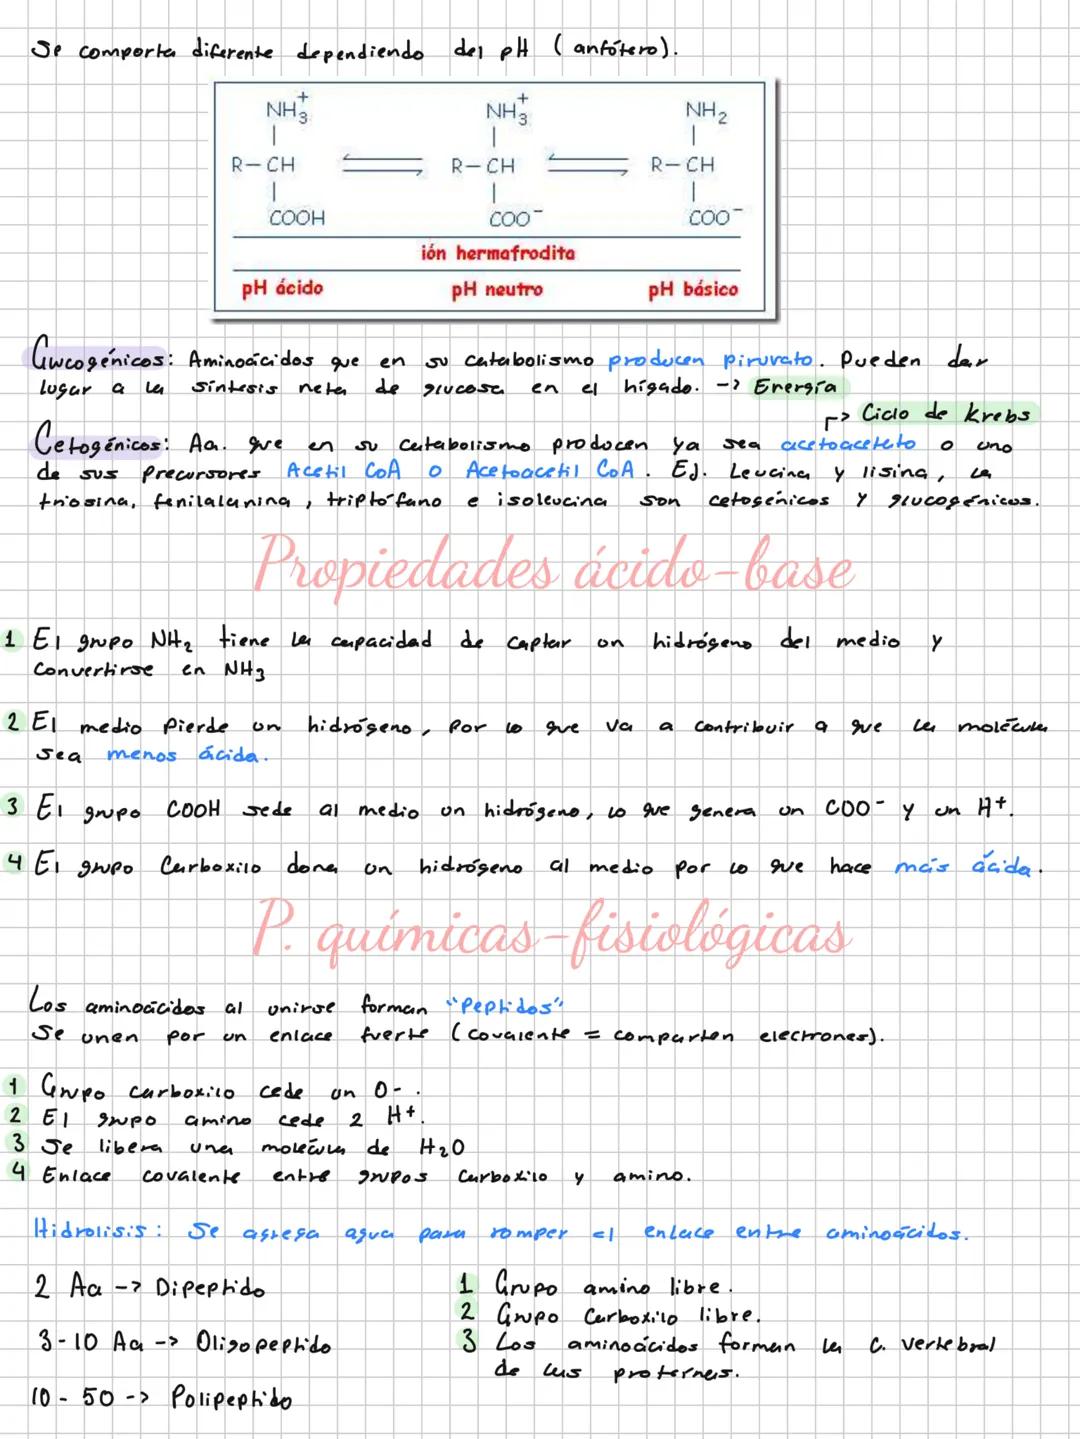 Se comporta diferente dependiendo del pH (anfótero).
NH3+ NH3+ NH2
R-CH R-CH R-CH
COOH COO- COO-
ión hermafrodita
pH ácido pH neutro pH básico
Glucogénicos: Aminoácidos que en su catabolismo producen piruvato. Pueden dar
lugar a la síntesis neta de glucosa en el hígado. -> Energía
-> Ciclo de Krebs
Cetogénicos: Aa. que en su catabolismo producen ya sea acetoacetato o uno
de sus precursores Acetil CoA o Acetoacetil CoA. Ej. Leucina y lisina, la
triosina, fenilalanina, triptófano e isoleucina son cetogénicos y glucogénicos.
Propiedades ácido-base
1 El grupo NH2 tiene la capacidad de captar un hidrógeno del medio y
convertirse en NH3
2 El medio pierde un hidrógeno, por lo que va a contribuir a que la molécula
sea menos ácida.
3 El grupo COOH sede al medio un hidrógeno, lo que genera un COO- y un H+.
4 El grupo Carboxilo dona un hidrógeno al medio por lo que hace más ácida.
P. químicas-fisiológicas
Los aminoácidos al unirse forman "Peptidos"
Se unen por un enlace fuerte (covalente = comparten electrones).
1 Grupo carboxilo cede un O-.
2 El grupo amino cede 2 H+.
3 Se libera una molécula de H2O
4 Enlace covalente entre grupos Carboxilo y amino.
Hidrolisis: Se agrega agua para romper el enlace entre aminoácidos.
2 Aa -> Dipeptido
3-10 Aa -> Oligopeptido
10-50 -> Polipeptido
1 Grupo amino libre.
2 Grupo Carboxilo libre.
3 Los aminoácidos forman la C. vertebral
de las proteínas.